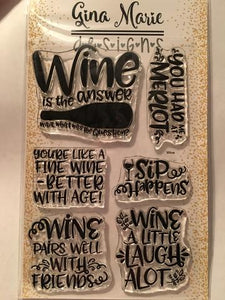 Gina Marie
DESIGNS
Wine
is the answer
what was the question?
YOU HAD
ME AT
MERLOT
YOU'RE LIKE A
FINE WINE
-BETTER
WITH AGE!
SIP
HAPPENS
WINE
PAIRS WELL
WITH
FRIENDS
WINE
A LITTLE
LAUGH
ALOT